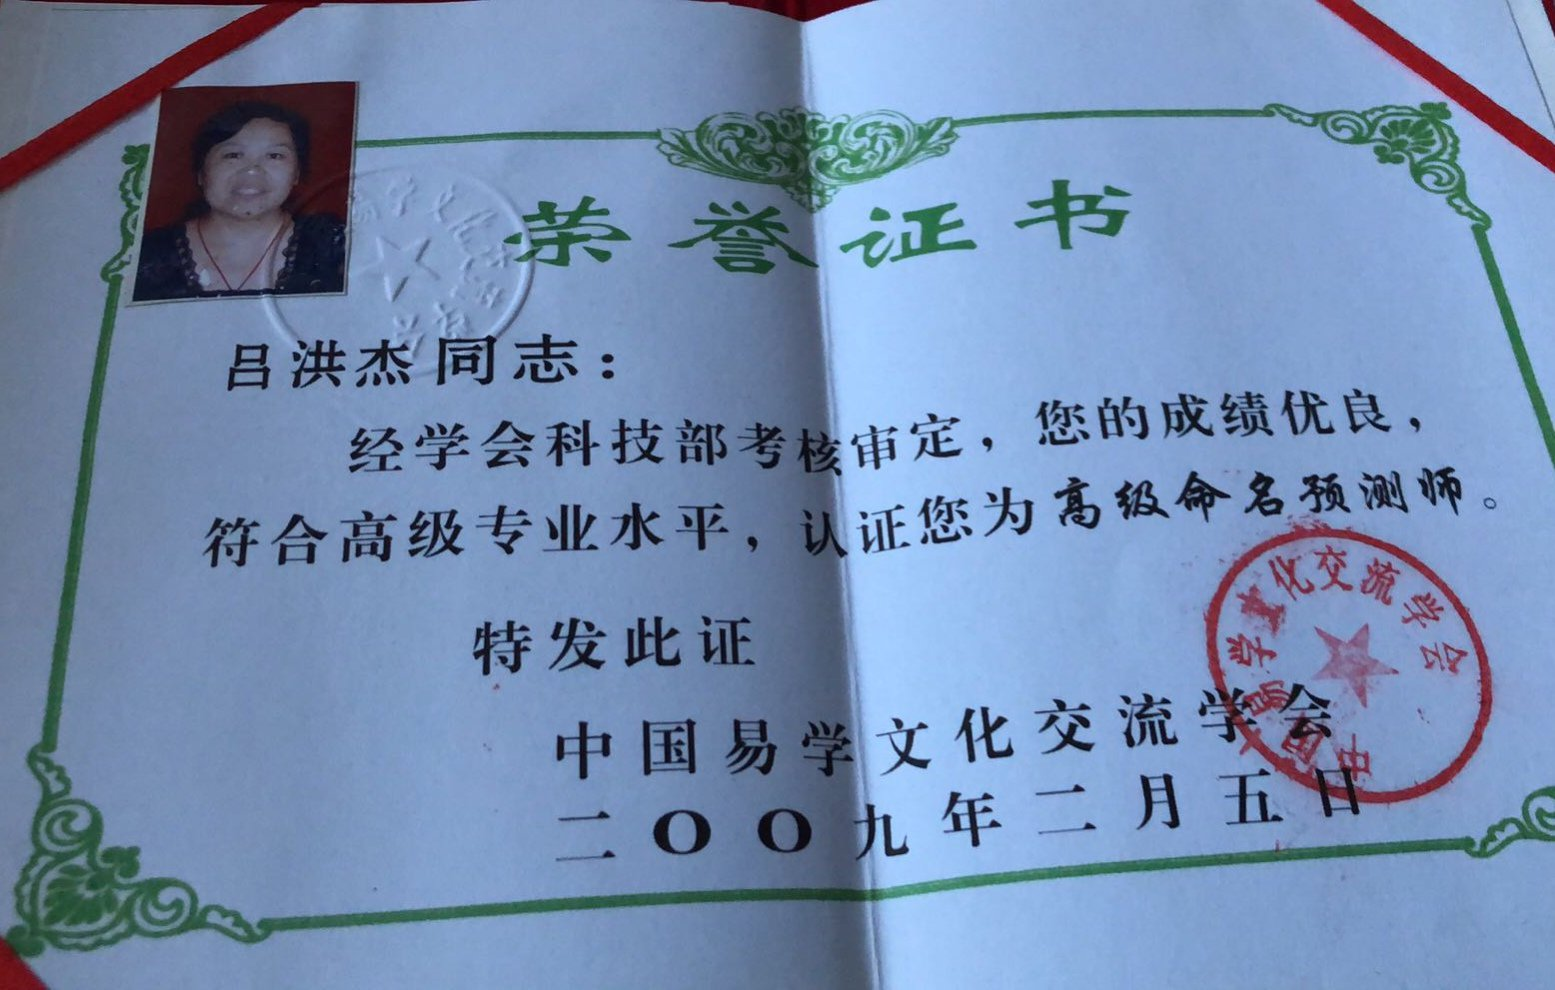 荣誉证书
吕洪杰同志：
经学会科技部考核审定，您的成绩优良，
符合高级专业水平，认证您为高级命名预测师。
特发此证
中国易学文化交流学会
二〇〇九年二月五日
中国易学文化交流学会